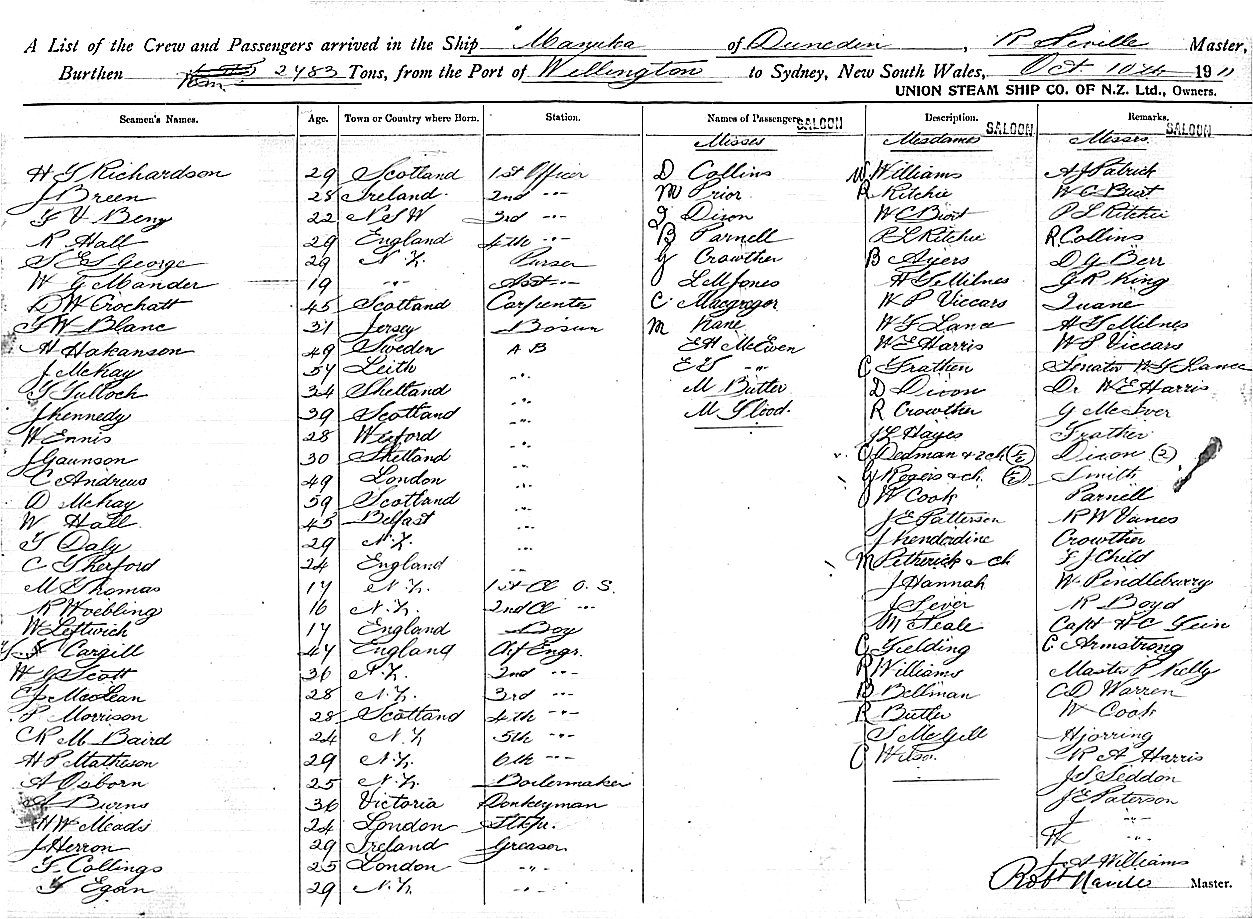 A List of the Crew and Passengers arrived in the Ship Manuka of Dunedin, R Neville Master,
Burthen 2483 Tons, from the Port of Wellington to Sydney, New South Wales, Oct. 10th 1911
UNION STEAM SHIP CO. OF N.Z. Ltd., Owners.
Seamen's Names. Age. Town or Country where Born. Station. Names of Passengers SALOON Description. SALOON Remarks. SALOON
Misses Mesdames Messrs.
H G Richardson 29 Scotland 1st Officer D Collins W Williams A J Patrick
J Breen 28 Ireland 2nd -"- M Prior R Ritchie W C Burt
22 N S W 3rd -"- Dixon W C Burt P L Ritchie
R Hall 29 England 4th -"- B Parnell P L Ritchie R Collins
S E S George 29 N.Z. Purser G Crowther B Ayers D G Berr
W G Mander 19 -"- Asst -"- L M Jones H G Milnes J R King
D W Crochatt 45 Scotland Carpenter C Macgregor W P Viccars Quane
W Blanc 31 Jersey Bosun M Kane W G Lance H G Milnes
H Hakanson 49 Sweden A B E H McEwen W E Harris W P Viccars
J McKay 57 Leith -"- E G -"- C Frathen Senator W G Lance
T Tulloch 34 Shetland -"- M Butler D Dixon Dr W E Harris
J Kennedy 39 Scotland -"- M Flood. R Crowther G McIver
W Ennis 28 Wexford -"- J L Hayes Frather
J Gaunson 30 Shetland -"- G Dedman & 2 ch Dixon (2)
C Andrews 49 London -"- G Rogers & ch. Smith
D McKay 59 Scotland -"- W Cook Parnell
W Hall 45 Belfast -"- J E Patterson R W Vanes
T Daly 29 N.Z. -"- J Henderdine Crowther
C Therford 24 England -"- M Petherick & ch F J Child
M Thomas 17 N.Z. 1st Cl O.S. J Hannah W Pendlebury
R Woebling 16 N.Z. 2nd Cl -"- J Lever R Boyd
W Leftwich 17 England Boy M Neale Capt H C
Cargill 47 England Chf Engr. C Fielding C Armstrong
W G Scott 36 N.Z. 2nd -"- R Williams Master P Kelly
C J MacLean 28 N.Z. 3rd -"- B Bellman C D Warren
P Morrison 28 Scotland 4th -"- R Butler W Cook
C R M Baird 24 N.Z. 5th -"- S McGill Hjorring
H P Matheson 29 N.Z. 6th -"- C Wilson R A Harris
A Osborn 25 N.Z. Boilermaker J S Seddon
A Burns 36 Victoria Donkeyman J E Paterson
H W Meads 24 London J -"-
J Herron 29 Ireland Greaser W -"-
T Collings 25 London -"- J A Williams
T Egan 29 N.Z. -"- Robt Naville Master.